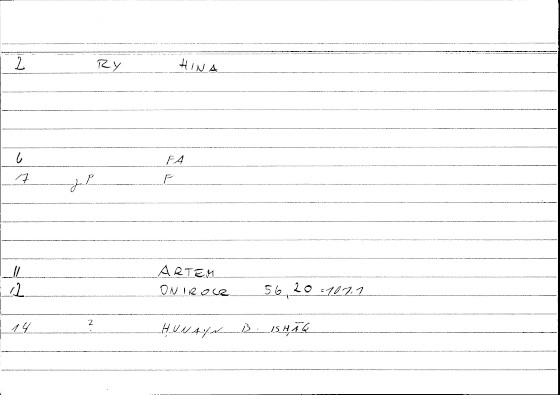 2 RY HINA
6 FA
7 gP F
11 ARTEM
12 ONIROCR 56,20 = 107.1
14 ? ḤUNAYN B. ISḤĀQ